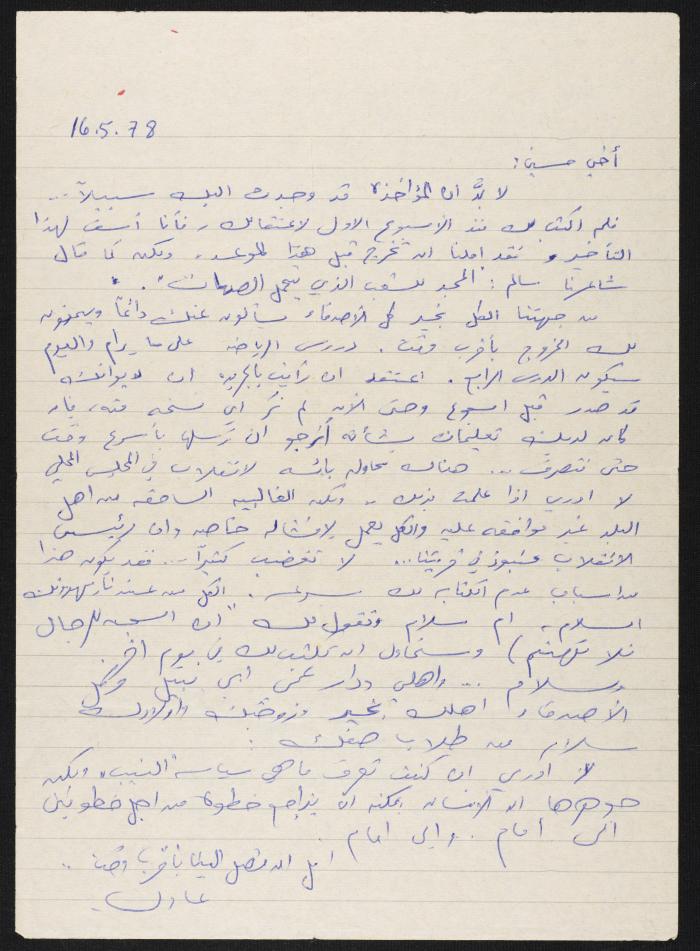 16.5.78
أخي حسين:
لا بدَّ أن المؤاخذة قد وجدت اليك سبيلاً ...
فلم اكتب لك منذ الاسبوع الاول لاعتقالك، فأنا أسف لهذا
التأخير، فقد املنا ان تخرج قبل هذا الموعد، ولكن كما قال
شاعرنا سالم: "المجد للشعب الذي يتحمل الصدمات".
من جهتنا الكل بخير كل الأصدقاء يسألون عنك دائماً ويتمنون
لك الخروج بأقرب وقت. دروس الرياضه على ما يرام واليوم
سيكون الدرس الرابع. اعتقد ان رأيت بالجريده ان ديوانك
قد صدر قبل اسبوع وحتى الآن لم نرَ اي نسخه منه، فإن
كان لديك تعليمات بشأنه أرجو ان ترسلها بأسرع وقت
حتى نتصرف ... هناك محاوله بائسه لانقلاب في المجلس المحلي
لا ادري اذا علمت بذلك .. ولكن الغالبيه الساحقه من اهل
البلد غير موافقه عليه والكل يعمل لإفشاله خاصه وان رئيس
الانقلاب منبوذ في قريتنا... لا تغضب كثيراً... فقد يكون هذا
من اسباب عدم الكتابه لك بسرعه. الكل من عندنا يهدونك
السلام، ام سلام وتقول لك "ان السجن للرجال
فلا تهتم) وسنحاول ان نكتب لك في يوم اخر.
وسلام ... واهلي ودار عمي ابي نبيل وكل
الأصدقاء اهلك بخير وزوجتك واولادك
سلام من طلاب صفك:
لا أدري ان كنت تعرف ما هي سياسة النيب، ولكن
جوهرها ان الانسان يمكنه ان يتراجع خطوة من اجل خطوتين
الى أمام. والى امام.
امل ان تصل الينا بأقرب وقت ..
عادل